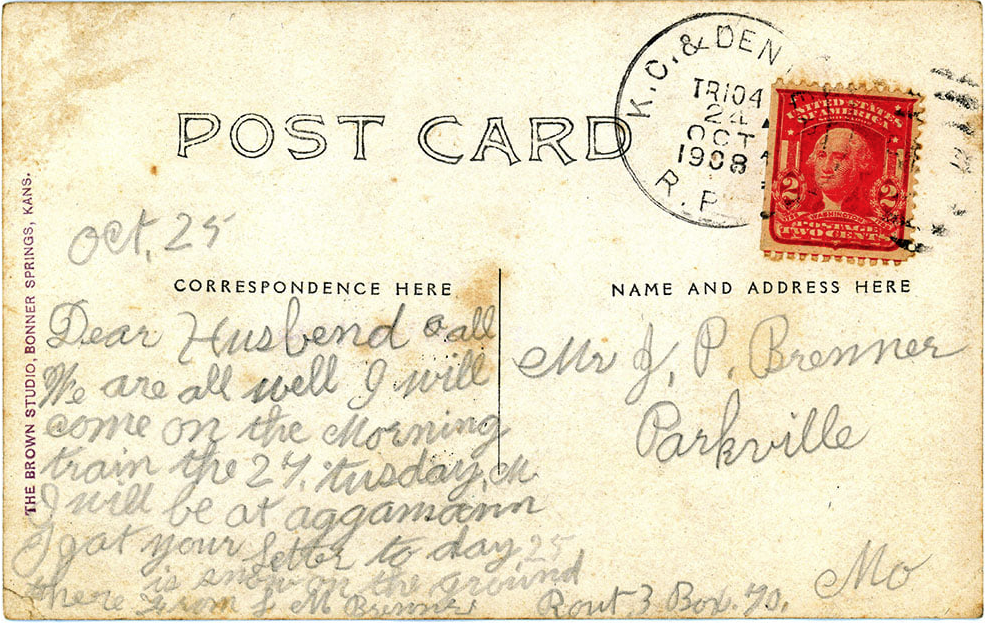 POST CARD
K.C. & DEN
TR 104
24
OCT
1908
R.P
UNITED STATES
OF AMERICA
2 2
WASHINGTON
POSTAGE
TWO CENTS
THE BROWN STUDIO, BONNER SPRINGS, KANS.
Oct, 25
CORRESPONDENCE HERE
Dear Husbend & all
We are all well I will
come on the Morning
train the 27, tusday, M
I will be at aggamann
I gat your letter to day 25
is snow on the ground
there From L M Brenner
NAME AND ADDRESS HERE
Mr J, P. Brenner
Parkville
Mo
Rout 3 Box. 70.